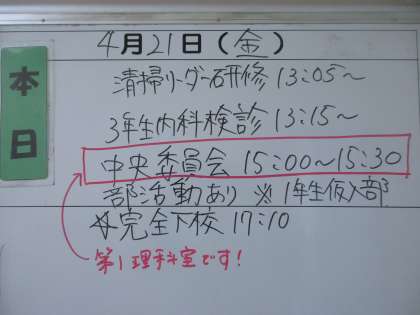 本日
4月21日(金)
清掃リーダー研修 13:05~
3年生内科検診 13:15~
中央委員会 15:00~15:30
部活動あり ※1年生仮入部
☆完全下校 17:10
第1理科室です!